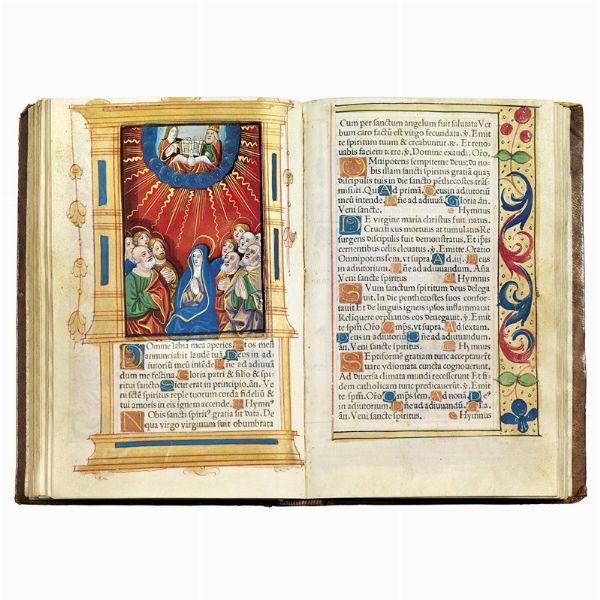 Domine labia mea aperies. Et os meū
annunciabit laudē tuā. Deus in ad
iutoriū meū intēde. Dñe ad adiuuā
dum me festina. Gloria patri & filio & spi
ritui sancto. Sicut erat in principio. añ. Ve
ni sctē spiritus reple tuorum corda fideliū &
tui amoris in eis ignem accende. Hymnꝰ
Nobis sancti spiritꝰ gratia sit data. De
qua virgo virginum suit obumbrata
Cum per sanctum angelum fuit salutata Ver
bum caro factū est virgo fecundata. ℣. Emit
te spiritum tuum & creabuntur. ℟. Et reno
uabis faciem terre. ℣. Domine exaudi. Oro.
Omnipotens sempiterne deus: da no
bis illam sancti spiritus gratiā quaȝ
discipulis tuis in die sancto pēthecostes trās
misisti. Qui Ad primā. Deus in adiutoriū
meū intende. Dñe ad adiuuā. Gloria añ.
Veni sancte. Hymnus
De virgine maria christus fuit natus.
Crucifixus mortuus at tumulatus Re
surgens discipulis fuit demonstratus. Et ipsis
cernentibus celis eleuatus. ℣. Emitte. Oratio
Omnipotens sem. vt supra. Ad .iij. Deus
in adiutorium. Dñe ad adiuuandum. Aña
Veni sancte spiritus. Hymnus
Suum sanctum spiritum deus delega
uit. In die penthecostes suos confor
tauit Et de linguis igneis ipsos inflammauit
Relīquere orphanos eos denegauit. ℣. Emitte
te spm. Oro. Omps. vt supra. Ad sextam.
Deus in adiutorium. Dñe ad adiuuandū.
añ. Veni sancte spiritus. Hymnus
Septiformē gratiam tunc acceptauerūt
uare ydiomata cuncta cognouerunt.
Ad diuersa climata mundi recesserunt Et fidem
catholicam tunc predicauerūt. ℣. Emit
te spm. Oro Omps sem. Ad nonā. Deus
in adiutorium. Dñe ad adiuuandū. Gla.
añ. Veni sancte spiritus. Hymnus